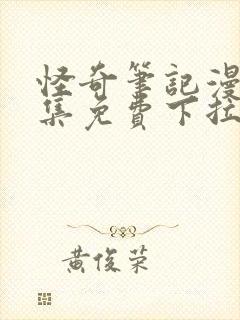 怪奇筆記漫
集免費下拉
黃俊荣